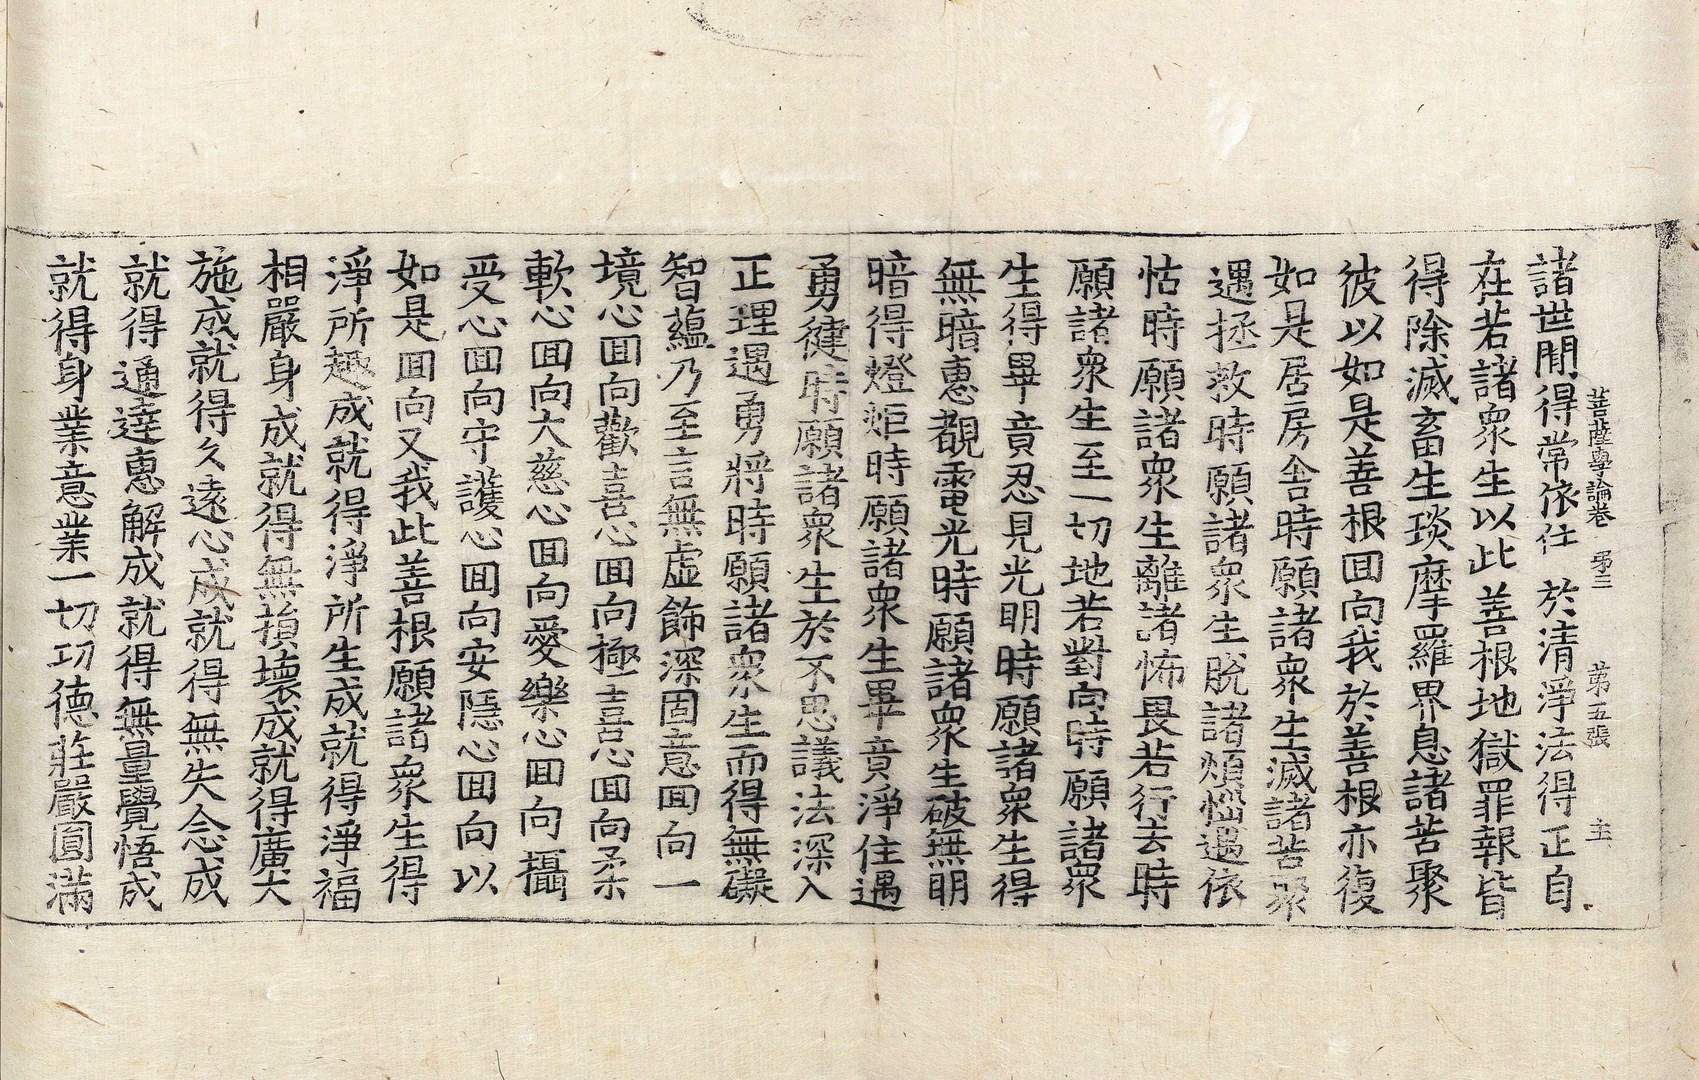 菩薩學論卷 第三 第五張 主
諸世間得常依住於清淨法得正自
在若諸衆生以此善根地獄罪報皆
得除滅畜生琰摩羅界息諸苦聚
彼以如是善根回向我於善根亦復
如是居房舍時願諸衆生滅諸苦聚
遇拯救時願諸衆生脫諸煩惱遇依
怙時願諸衆生離諸怖畏若行去時
願諸衆生至一切地若對向時願諸衆
生得畢竟忍見光明時願諸衆生得
無暗惠覩電光時願諸衆生破無明
暗得燈炬時願諸衆生畢竟淨住遇
勇健時願諸衆生於不思議法深入
正理遇勇將時願諸衆生而得無礙
智蘊乃至言無虛飾深固意回向一
境心回向歡喜心回向極喜心回向柔
軟心回向大慈心回向愛樂心回向攝
受心回向守護心回向安隱心回向以
如是回向又我此善根願諸衆生得
淨所趣成就得淨所生成就得淨福
相嚴身成就得無損壞成就得廣大
施成就得久遠心成就得無失念成
就得通達惠解成就得無量覺悟成
就得身業意業一切功德莊嚴圓滿